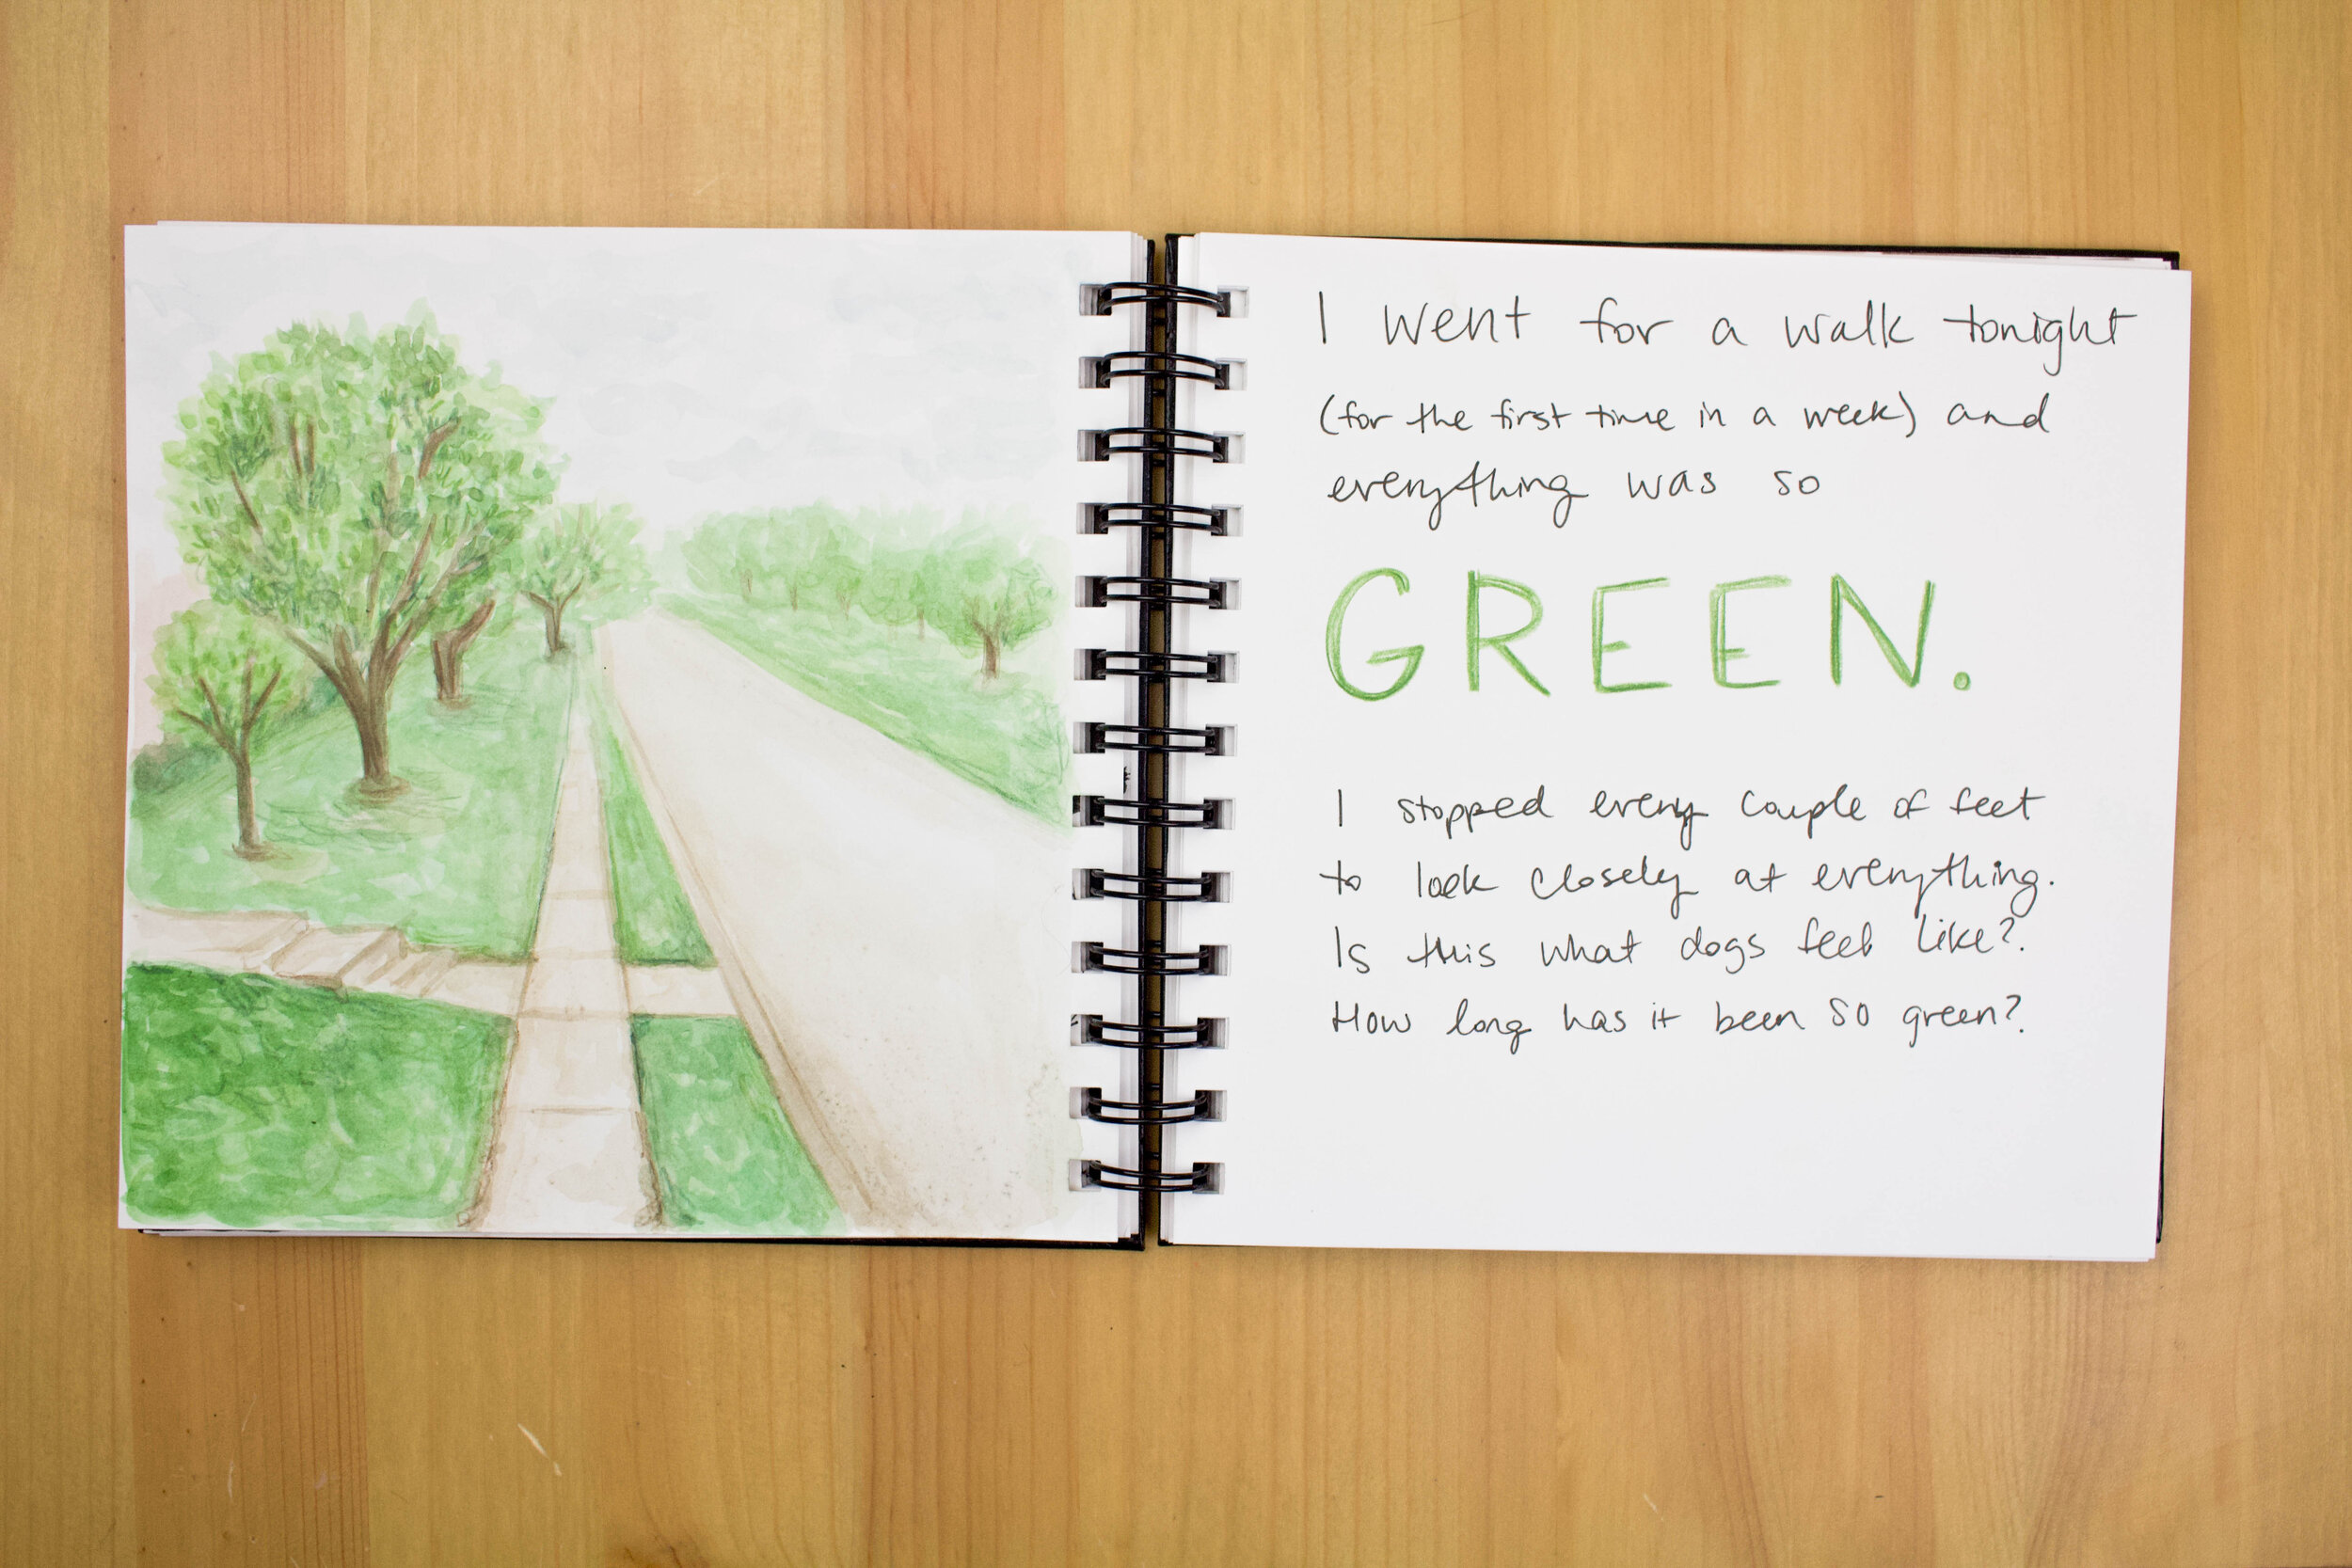 I went for a walk tonight
(for the first time in a week) and
everything was so
GREEN.
I stopped every couple of feet
to look closely at everything.
Is this what dogs feel like?
How long has it been so green?